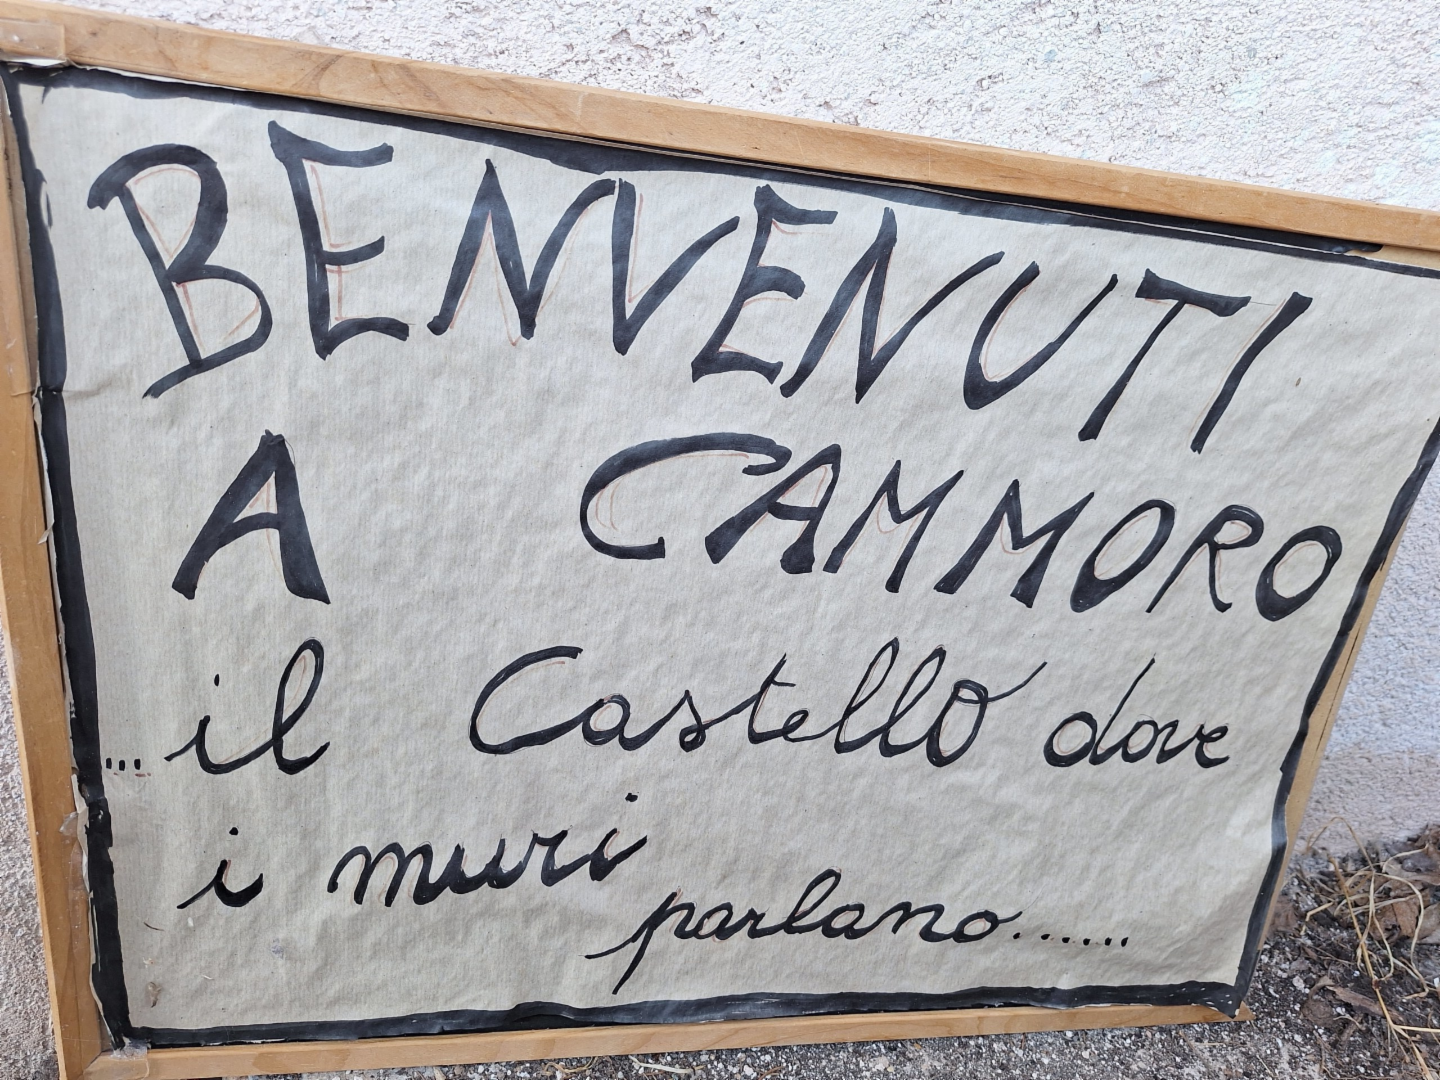 BENVENUTI
A CAMMORO
... il Castello dove
i muri
parlano.......